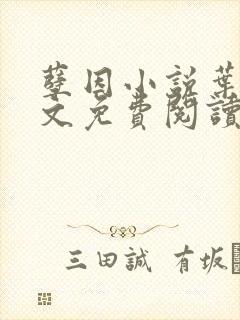 孽因小说葉
文免費閱讀
三田誠 有坂